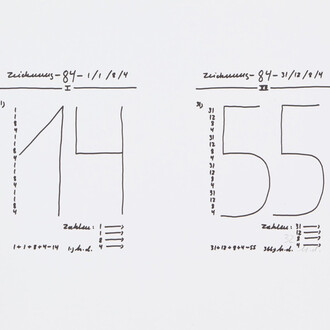 Zeichnung - 84 - 1/1/8/4
I
1)
14
1
1
8
4
1
1
8
4
1
1
8
4
Zahlen: 1
1
8
4
1+1+8+4-14
Zeichnung - 84 - 31/12/8/4
XII
55
31
12
8
4
31
12
8
4
31
12
8
4
Zahlen: 31
12
8
4
31+12+8+4-55